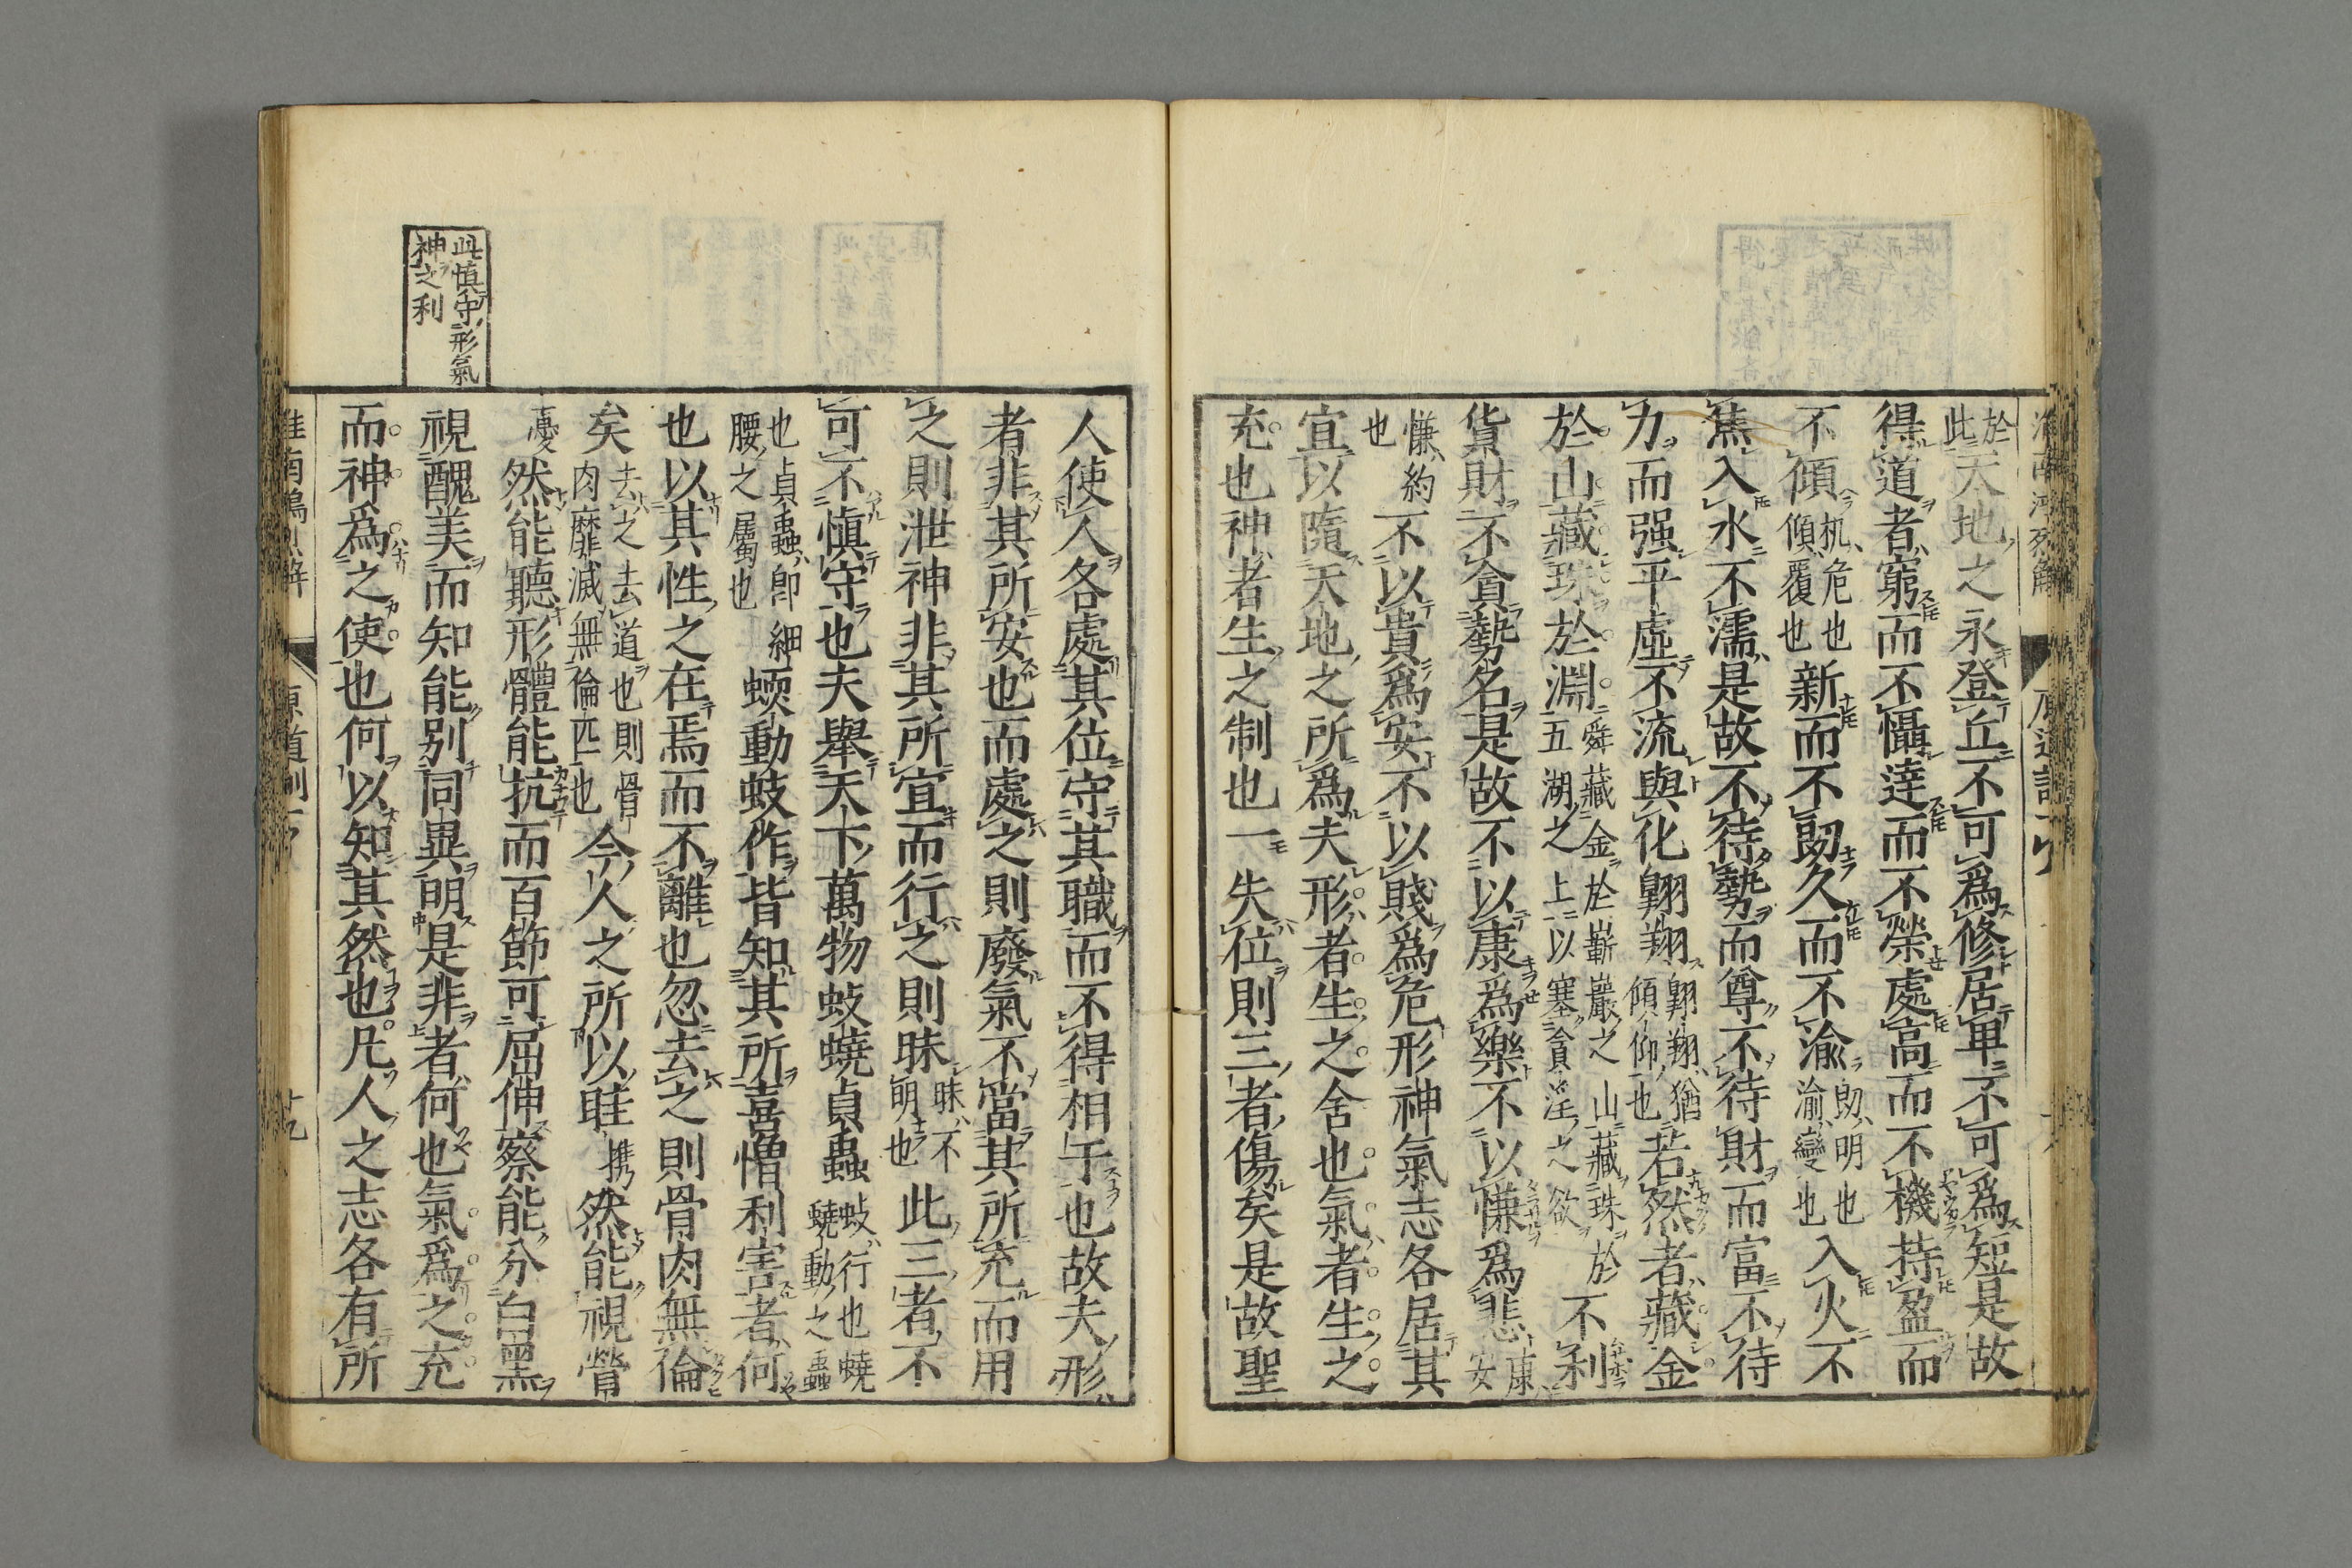 於此天地之永登丘不可爲修居卑不可爲短是故
得道者窮而不懾達而不榮處高而不機持盈而
不傾机危也傾覆也新而不朗久而不渝朗明也渝變也入火不
焦入水不濡是故不待勢而尊不待財而富不待
力而强平虛不流與化翺翔翺翔猶傾仰也若然者藏金
於山藏珠於淵舜藏金於嶄巖之山藏珠於五湖之上以塞貪淫之欲不利
貨財不貪勢名是故不以康爲樂不以慊爲悲康安
慊約也不以貴爲安不以賤爲危形神氣志各居其
宜以隨天地之所爲夫形者生之舍也氣者生之
充也神者生之制也一失位則三者傷矣是故聖
人使人各處其位守其職而不得相于也故夫形
者非其所安也而處之則廢氣不當其所充而用
之則泄神非其所宜而行之則昧昧不明也此三者不
可不愼守也夫舉天下萬物蚑蟯貞蟲蚑行也蟯蟯動之蟲
也貞蟲卽細腰之屬也蝡動蚑作皆知其所喜憎利害者何
也以其性之在焉而不離也忽去之則骨肉無倫
矣去之去道也則骨肉靡滅無倫匹也今人之所以眭携然能視瞢
憂然能聽形體能抗而百節可屈伸察能分白黑
視醜美而知能别同異明是非者何也氣爲之充
而神爲之使也何以知其然也凡人之志各有所
此慎守形氣
神之利
淮南鴻烈解 原道訓 十九